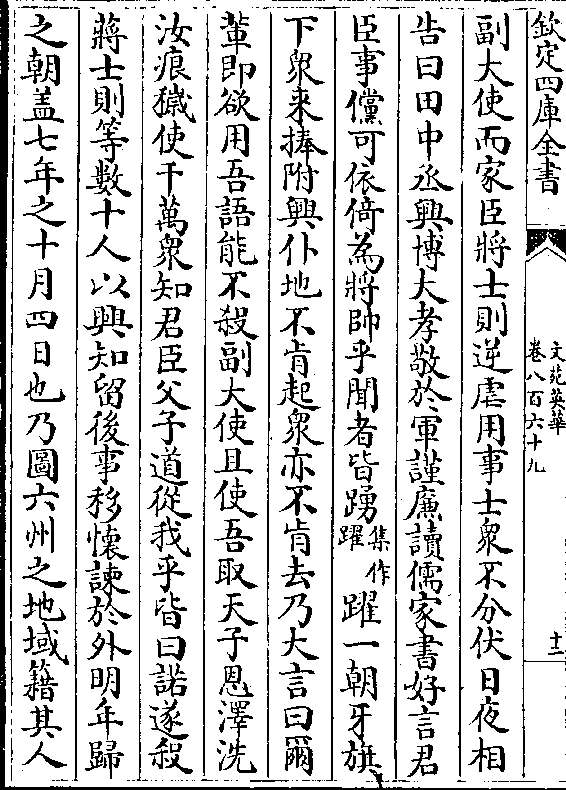 欽定四庫全書
文苑英華
卷八百六十九
十二
副大使而家臣將士則逆虐用事士衆不分伏日夜相
告曰田中丞興博大孝敬於軍謹廉讀儒家書好言君
臣事儻可依倚為將帥乎聞者皆踴集作躍躍一朝牙旗
下衆来捧附興仆地不肯起衆亦不肯去乃大言曰爾
輩即欲用吾語能不殺副大使且使吾取天子恩澤洗
汝痕穢使千萬衆知君臣父子道從我乎皆曰諾遂殺
蔣士則等數十人以興知留後事移懷諫於外明年歸
之朝盖七年之十月四日也乃圖六州之地域籍其人